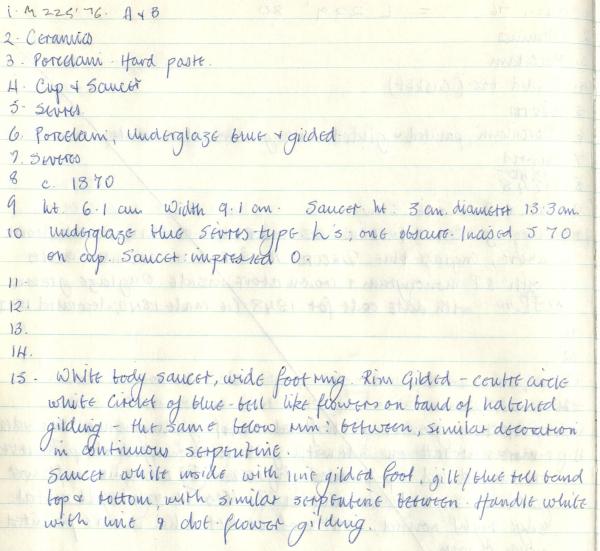 1. M 225'76. A & B
2. Ceramics
3. Porcelain. Hard paste.
4. Cup & Saucer
5. Sevres
6. Porcelain, underglaze blue & gilded
7. Severes
8 c. 1870
9 ht 6.1 cm width 9.1 cm. Saucer ht 3 cm. diameter 13.3 cm
10 underglaze blue Sevres-type L's; one obscure. Incised J 70
on cup. Saucer: impressed O
11
12
13.
14.
15. White body saucer, wide foot ring. Rim Gilded – centre circle
white Circlet of blue-bell like flowers on band of hatched
gilding – the same below rim: between, similar decoration
in continuous serpentine.
Saucer white inside with line gilded foot, gilt/blue bell band
top & bottom, with similar serpentine between. Handle white
with line & dot-flower gilding.